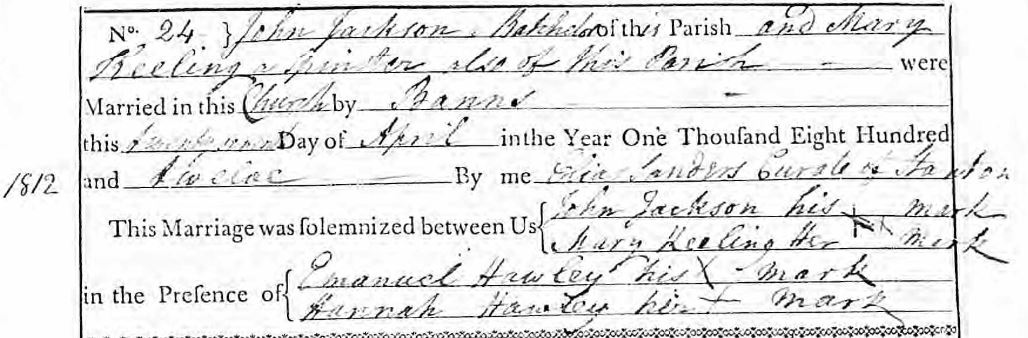 No. 24 } John Jackson, Batchelor of this Parish and Mary
Keeling a Spinster also of this Parish were
Married in this Church by Banns
this Day of April in the Year One Thouſand Eight Hundred
1812 and Twelve By me Elias Sanders Curate of Stanton
This Marriage was ſolemnized between Us { John Jackson his X mark
Mary Keeling Her X mark
in the Preſence of { Emanuel Hawley his X mark
Hannah Hawley her + mark